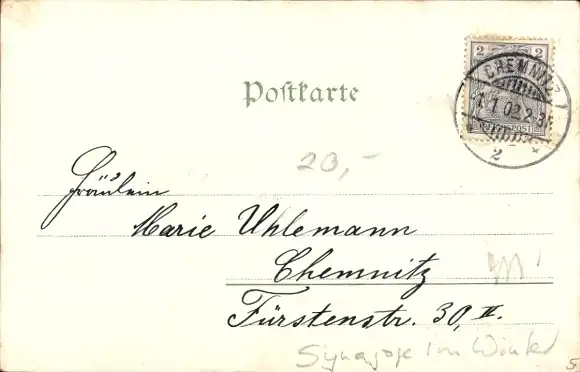 Postkarte
2 2
CHEMNITZ
1.1.02.2-3N
REICHSPOST
2 *
20,-
Fräulein
Marie Uhlemann
Chemnitz
Fürstenstr. 30, II.
Synagoge im Winter
5